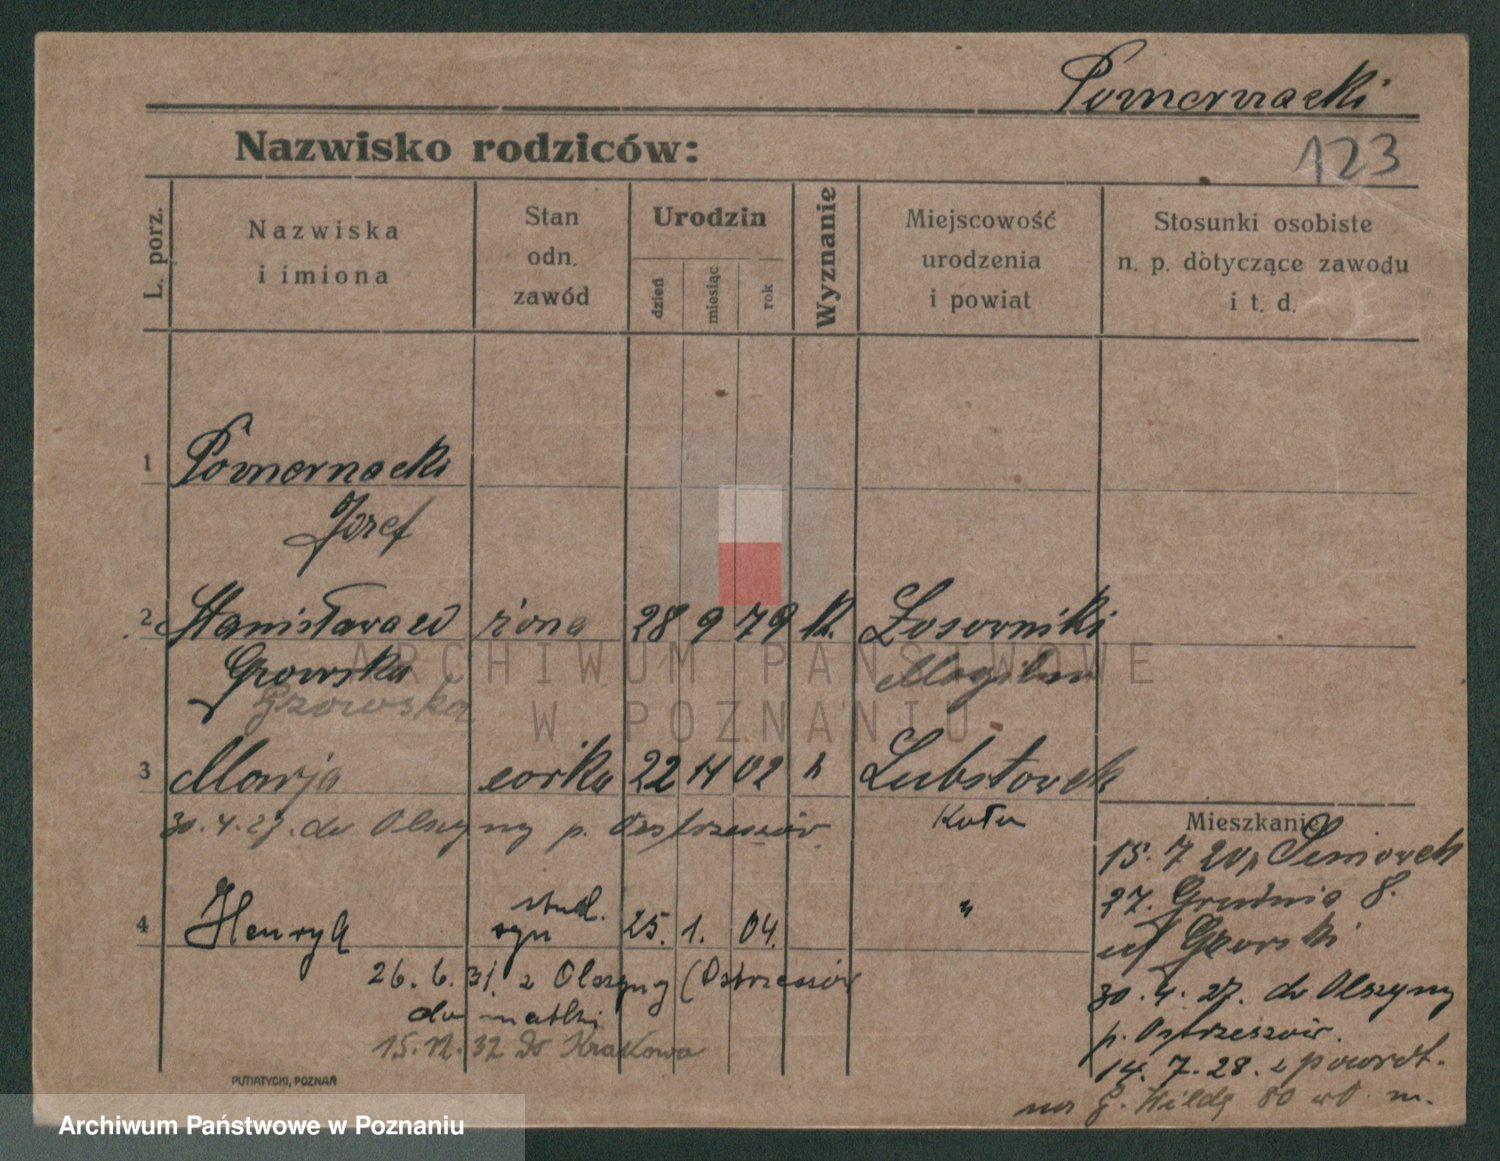 Pomornacki
123
Nazwisko rodziców:
L. porz.
Nazwiska
i imiona
Stan
odn.
zawód
Urodzin
dzień
miesiąc
rok
Wyznanie
Miejscowość
urodzenia
i powiat
Stosunki osobiste
n. p. dotyczące zawodu
i t. d.
1 Pomornacki
Józef
2 Stanisława żona 28 9 79 k.
Mogilno
Gzowska
3 Marja córka 22 11 02 k
30.4.27. do Olszyny p. Ostrzeszów
Koło
Mieszkanie
15. 7 20
27. Grudnia 8.
4 Henryk stud.
syn 25. 1. 04. "
26. 6. 31. z Olszyny (Ostrzeszów
do matki
15.12.32 do Krakowa
30. 4. 27. do Olszyny
p. Ostrzeszów.
14. 7. 28. z powrot.
G. Wilda 80
PUTIATYCKI, POZNAŃ
ARCHIWUM PAŃSTWOWE
W POZNANIU
Archiwum Państwowe w Poznaniu